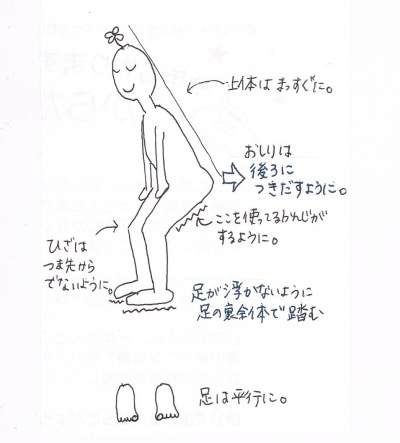 上体はまっすぐに。
おしりは
後ろに
つきだすように。
ここを使ってるかんじが
するように。
ひざは
つま先から
でないように。
足が浮かないように
足の裏全体で踏む
足は平行に。